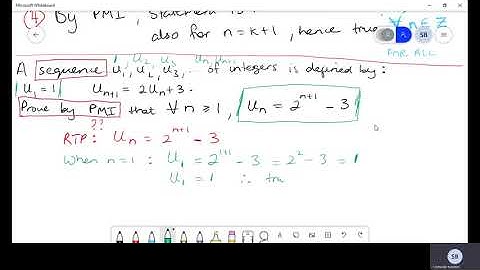 Microsoft Whiteboard
④ By PMI, Statement is
also for n = k+1, hence true ∀ n ∈ Z
FOR ALL
u₁, u₂, u₃, ... uₙ, uₙ₊₁
A sequence u₁, u₂, u₃, ... of integers is defined by:
u₁ = 1 uₙ₊₁ = 2uₙ + 3.
Prove by PMI that ∀ n ≥ 1, uₙ = 2ⁿ⁺¹ - 3
??
RTP: uₙ = 2ⁿ⁺¹ - 3
When n=1: u₁ = 2¹⁺¹ - 3 = 2² - 3 = 1
u₁ = 1 ∴ tru
SB
SB